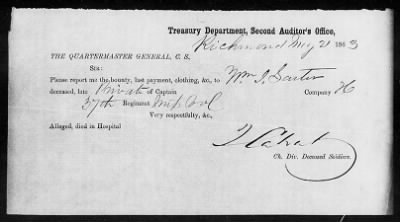 Treasury Department, Second Auditor's Office,
Richmond May 21 1863
THE QUARTERMASTER GENERAL, C. S.
SIR:
Please report me the bounty, last payment, clothing, &c., to Wm J.
deceased, late Private of Captain Company H
37th Regiment Vol
Very respectfully, &c.,
Alleged, died in Hospital
Ch. Div. Deceased Soldiers.